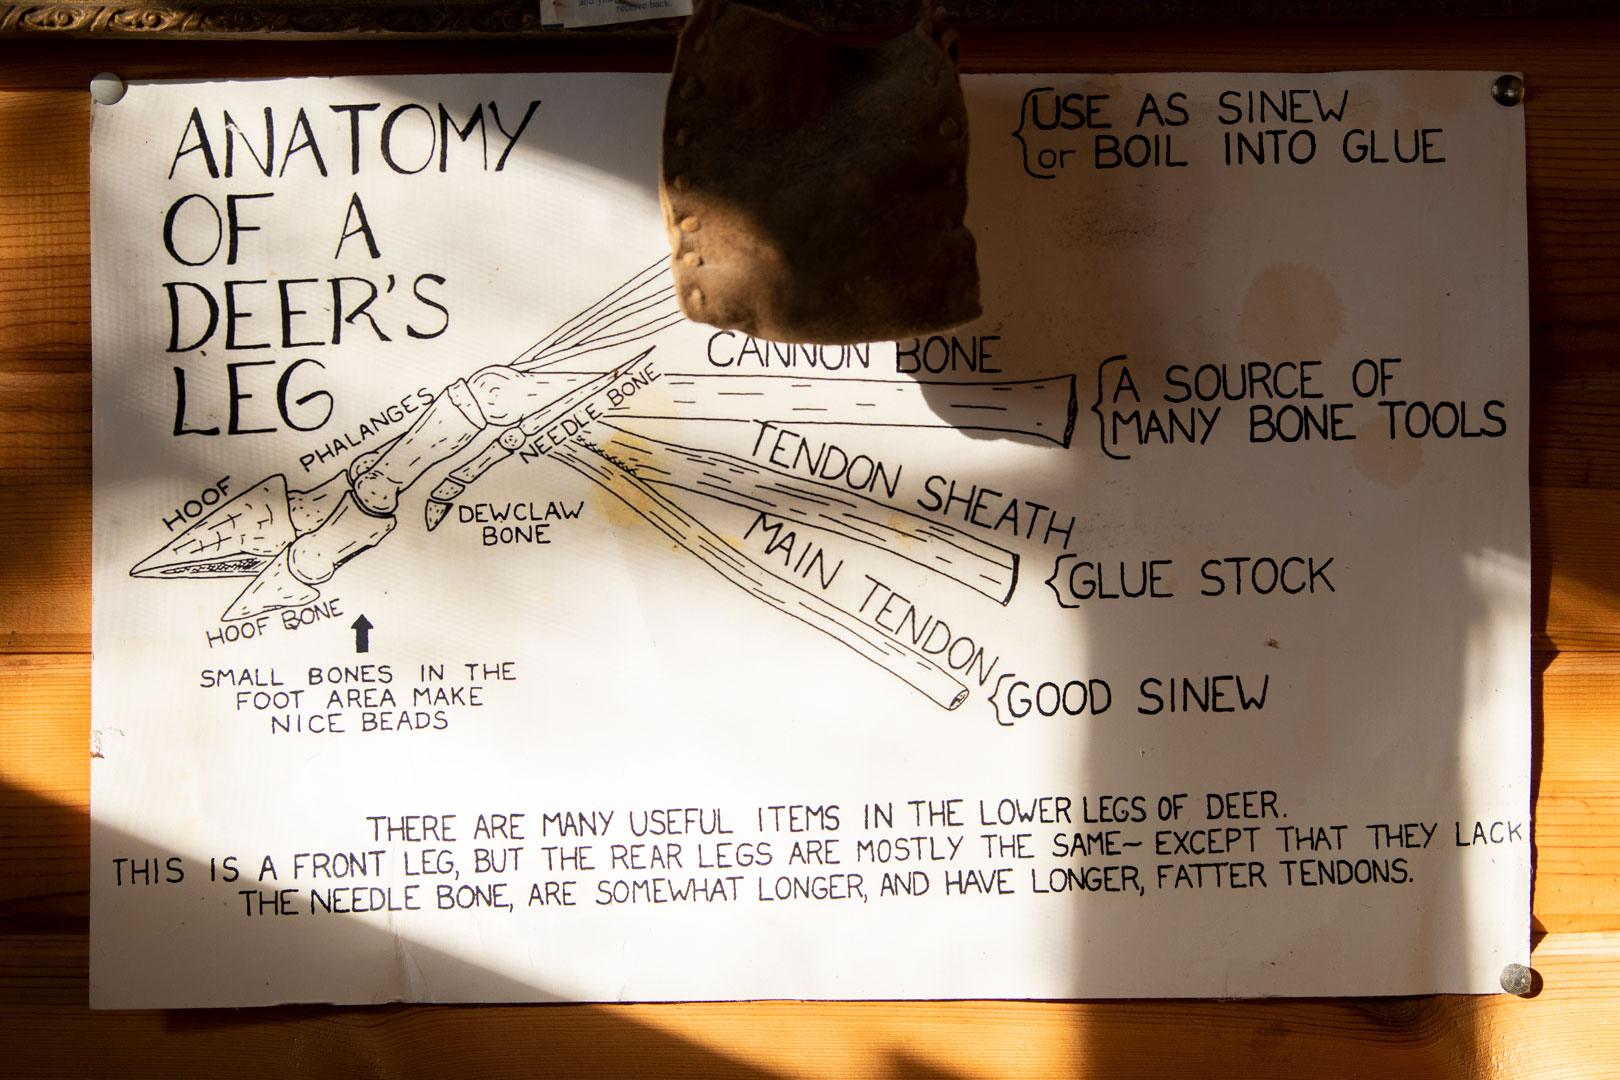 and you
receive back.
ANATOMY
OF A
DEER'S
LEG
{USE AS SINEW
or BOIL INTO GLUE
CANNON BONE
{A SOURCE OF
MANY BONE TOOLS
PHALANGES
NEEDLE BONE
TENDON SHEATH
HOOF
DEWCLAW
BONE
MAIN TENDON
{GLUE STOCK
HOOF BONE
SMALL BONES IN THE
FOOT AREA MAKE
NICE BEADS
{GOOD SINEW
THERE ARE MANY USEFUL ITEMS IN THE LOWER LEGS OF DEER.
THIS IS A FRONT LEG, BUT THE REAR LEGS ARE MOSTLY THE SAME~ EXCEPT THAT THEY LACK
THE NEEDLE BONE, ARE SOMEWHAT LONGER, AND HAVE LONGER, FATTER TENDONS.